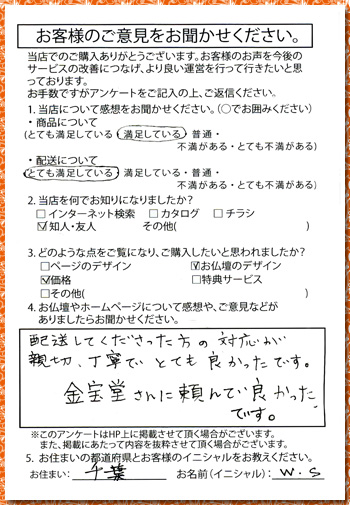 お客様のご意見をお聞かせください。
当店でのご購入ありがとうございます。お客様のお声を今後の
サービスの改善につなげ、より良い運営を行って行きたいと思
っております。
お手数ですがアンケートをご記入の上、ご返信ください。
1. 当店について感想をお聞かせください。(〇でお囲みください)
・商品について
(とても満足している・満足している・普通・
不満がある・とても不満がある)
・配送について
(とても満足している・満足している・普通・
不満がある・とても不満がある)
2. 当店を何でお知りになりましたか?
□インターネット検索 □カタログ □チラシ
☑知人・友人 その他( )
3. どのような点をご覧になり、ご購入したいと思われましたか?
□ページのデザイン ☑お仏壇のデザイン
☑価格 □特典サービス
□その他( )
4. お仏壇やホームページについて感想や、ご意見などが
ありましたらお聞かせください。
配送してくださった方の対応が
親切、丁寧でとても良かったです。
金宝堂さんに頼んで良かった
です。
※このアンケートはHP上に掲載させて頂く場合がございます。
また、掲載にあたって内容を抜粋させて頂く場合がございます。
5. お住まいの都道府県とお客様のイニシャルをお教えください。
お住まい: 千葉 お名前(イニシャル): W.S